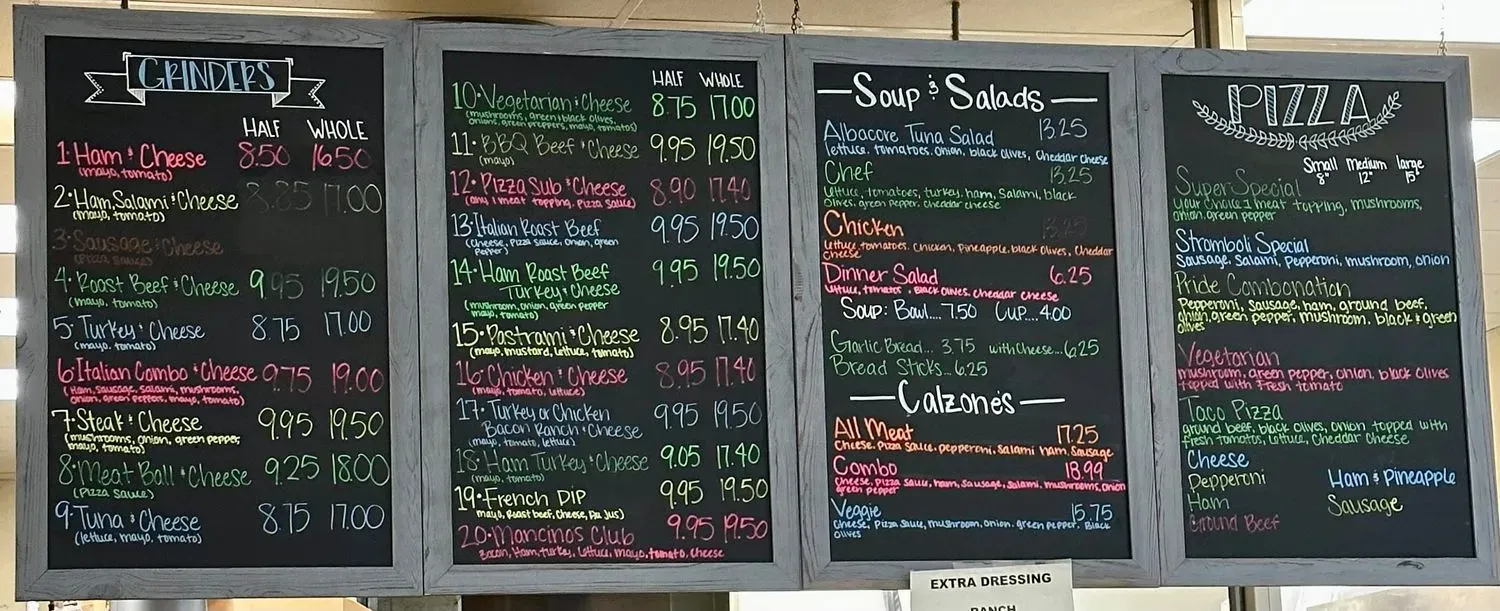 GRINDERS
HALF WHOLE
1. Ham & Cheese 8.50 16.50
(mayo, tomato)
2. Ham, Salami & Cheese 8.85 17.00
(mayo, tomato)
3. Sausage & Cheese
(pizza sauce)
4. Roast Beef & Cheese 9.95 19.50
(mayo, tomato)
5. Turkey & Cheese 8.75 17.00
(mayo, tomato)
6. Italian Combo & Cheese 9.75 19.00
(Ham, Sausage, Salami, mushrooms,
onion, green peppers, mayo, tomato)
7. Steak & Cheese 9.95 19.50
(mushrooms, onion, green pepper,
mayo, tomato)
8. Meat Ball & Cheese 9.25 18.00
(Pizza Sauce)
9. Tuna & Cheese 8.75 17.00
(lettuce, mayo, tomato)
HALF WHOLE
10. Vegetarian & Cheese 8.75 17.00
(mushrooms, green & black olives,
onions, green preppers, mayo, tomatos)
11. BBQ Beef & Cheese 9.95 19.50
(mayo)
12. Pizza Sub & Cheese 8.90 17.40
(any 1 meat topping, Pizza sauce)
13. Italian Roast Beef 9.95 19.50
(Cheese, Pizza Sauce, onion, green
Pepper)
14. Ham Roast Beef 9.95 19.50
Turkey & Cheese
(mushroom, onion, green pepper
mayo, tomato)
15. Pastrami & Cheese 8.95 17.40
(mayo, mustard, lettuce, tomato)
16. Chicken & Cheese 8.95 17.40
(mayo, tomato, lettuce)
17. Turkey or Chicken 9.95 19.50
Bacon Ranch & Cheese
(mayo, tomato, lettuce)
18. Ham Turkey & Cheese 9.05 17.40
(mayo, tomato)
19. French Dip 9.95 19.50
mayo, Roast beef, Cheese, Au Jus)
20. Mancinos Club 9.95 19.50
Bacon, Ham, turkey, lettuce, mayo, tomato, cheese
Soup & Salads
Albacore Tuna Salad 13.25
lettuce, tomatoes, onion, black olives, Cheddar cheese
Chef 13.25
lettuce, tomatoes, turkey, ham, Salami, black
Olives, green pepper, cheddar cheese
Chicken 13.25
lettuce, tomatoes, chicken, Pineapple, black olives, Cheddar
Cheese
Dinner Salad 6.25
lettuce, tomatos, Black Olives, Cheddar cheese
Soup: Bowl....7.50 Cup...4.00
Garlic Bread... 3.75 with Cheese...6.25
Bread Sticks...6.25
Calzone's
All Meat 17.25
Cheese, Pizza Sauce, pepperoni, Salami Ham, Sausage
Combo 18.99
Cheese, Pizza Sauce, ham, Sausage, Salami, mushrooms, onion
Green pepper
Veggie 15.75
Cheese, Pizza Sauce, mushroom, onion, green pepper, Black
Olives
EXTRA DRESSING
RANCH
PIZZA
Small Medium large
8" 12" 15"
Super Special
your choice 1 meat topping, mushrooms,
onion, green pepper
Stromboli Special
Sausage, Salami, Pepperoni, mushroom, onion
Pride Combonation
Pepperoni, sausage, ham, ground beef,
onion, green pepper, mushroom, black & green
olives
Vegetarian
mushroom, green pepper, onion, black olives
topped with Fresh tomato
Taco Pizza
ground beef, black olives, onion topped with
fresh tomatos, lettuce, Cheddar Cheese
Cheese
Pepperoni Ham & Pineapple
Ham Sausage
Ground Beef